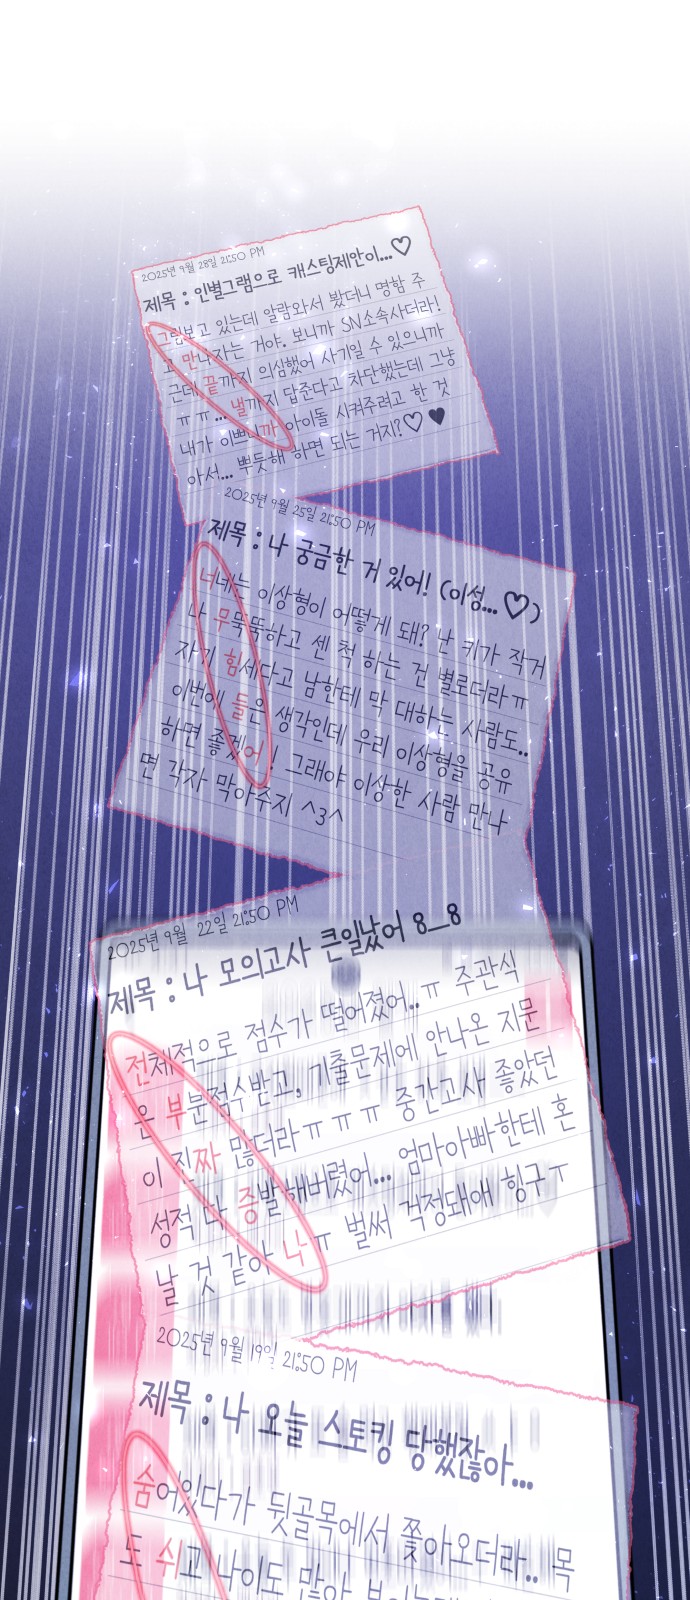 2025년 9월 28일 21:50 PM
제목 : 인별그램으로 캐스팅제안이...♡
그림보고 있는데 알람와서 봤더니 명함 주
고 만나자는 거야. 보니까 SN소속사더라!
근데 끝까지 의심했어 사기일 수 있으니까
ㅠㅠ... 낼까지 답준다고 차단했는데 그냥
내가 이쁘니까 아이돌 시켜주려고 한 것
아서... 뿌듯해 하면 되는 거지?♡♥
2025년 9월 25일 21:50 PM
제목 : 나 궁금한 거 있어! (이성...♡)
너네는 이상형이 어떻게 돼? 난 키가 작거
나 무뚝뚝하고 센 척 하는 건 별로더라ㅠ
자기 힘세다고 남한테 막 대하는 사람도..
이번에 들은 생각인데 우리 이상형을 공유
하면 좋겠어! 그래야 이상한 사람 만나
면 각자 막아주지 ^3^
2025년 9월 22일 21:50 PM
제목 : 나 모의고사 큰일났어 8_8
전체적으로 점수가 떨어졌어..ㅠ 주관식
은 부분점수받고, 기출문제에 안나온 지문
이 진짜 많더라ㅠㅠㅠ 중간고사 좋았던
성적 다 증발해버렸어... 엄마아빠한테 혼
날 것 같아 나ㅠ 벌써 걱정돼애 힝구ㅜ
2025년 9월 19일 21:50 PM
제목 : 나 오늘 스토킹 당했잖아...
숨어있다가 뒷골목에서 쫓아오더라.. 목
도 쉬고 나이도 많아